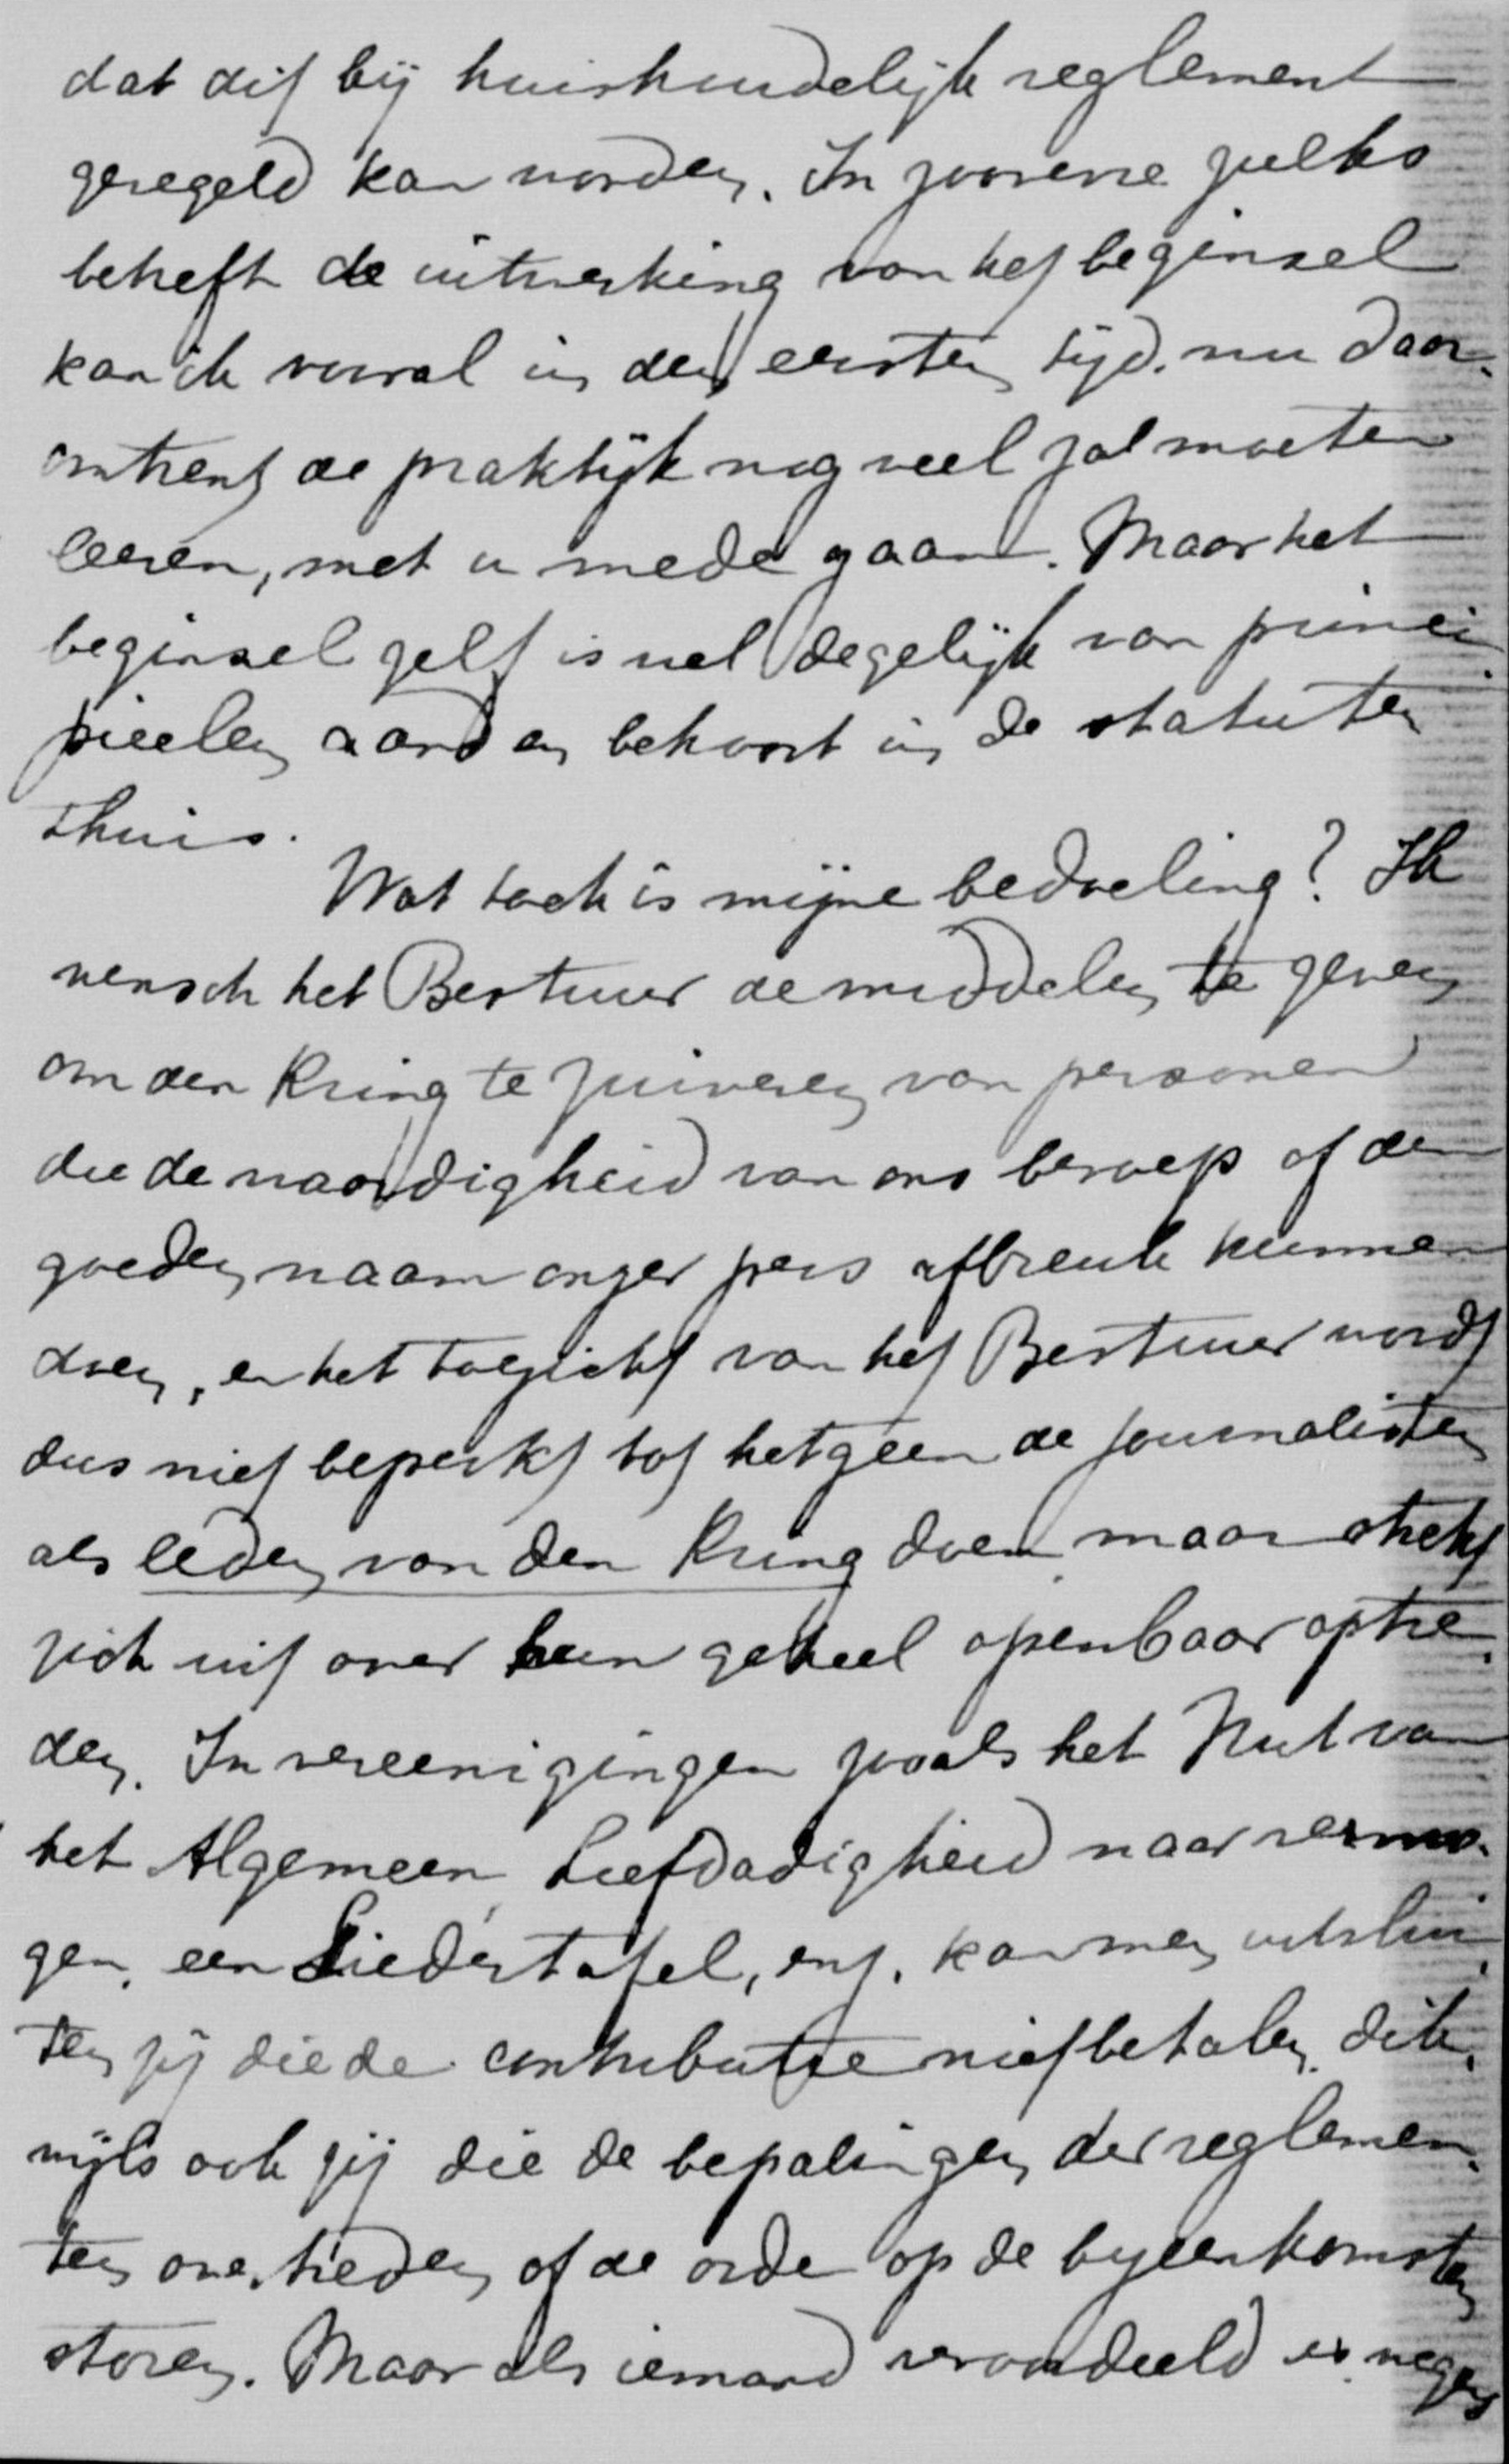 dat dit bij huishoudelijk reglement
geregeld kan worden. In zooverre zulks
betreft de uitwerking van het beginsel
kan ik vooral in den eersten tijd, nu daar-
omtrent de praktijk nog veel zal moeten
leeren, met u mede gaan. Maar het
beginsel zelf is wel degelijk van princi-
pieelen aard en behoort in de statuten
thuis.
Wat toch is mijne bedoeling? Ik
wensch het Bestuur de middelen te geven
om den Kring te zuiveren van personen
die de waardigheid van ons beroep of den
goeden naam onzer pers afbreuk kunnen
doen, en het toezicht van het Bestuur wordt
dus niet beperkt tot hetgeen de journalisten
als leden van den Kring doen, maar strekt
zich uit over hun geheel openbaar optre-
den. In vereenigingen zooals het Nut van
het Algemeen, Liefdadigheid naar vermo-
gen, een Liedertafel, enz. kan men uitslui-
ten zij die de contributie niet betalen, dik-
wijls ook zij die de bepalingen der reglemen-
ten overtreden of de orde op de bijeenkomsten
storen. Maar als iemand veroordeeld is wegens